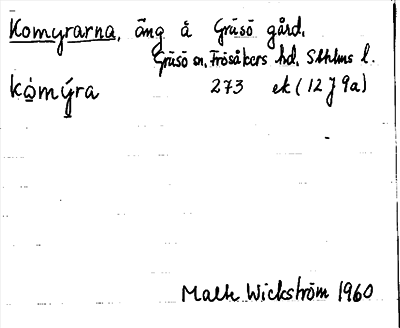 Komyrarna, äng å Gräsö gård,
Gräsö sn, Frösåkers hd, Sthlms l.
kòmýra 273 ek (12 J 9a)
Malte Wickström 1960